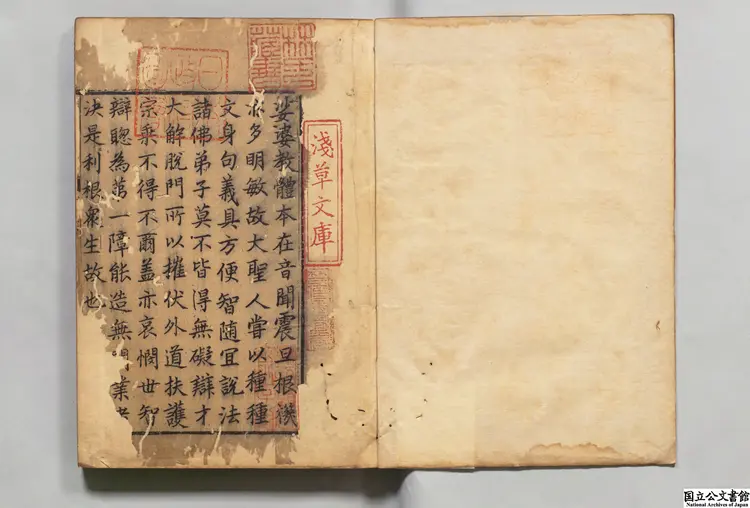 娑婆教體本在音聞震旦根機
亦多明敏故大聖人嘗以種種
文身句義具方便智隨宜說法
諸佛弟子莫不皆得無礙辯才
大解脫門所以摧伏外道扶護
宗乘不得不爾盖亦哀憫世智
辯聦為苐一障能造無間業決
決是利根衆生故也
淺草文庫
林氏藏書
国立公文書館
National Archives of Japan